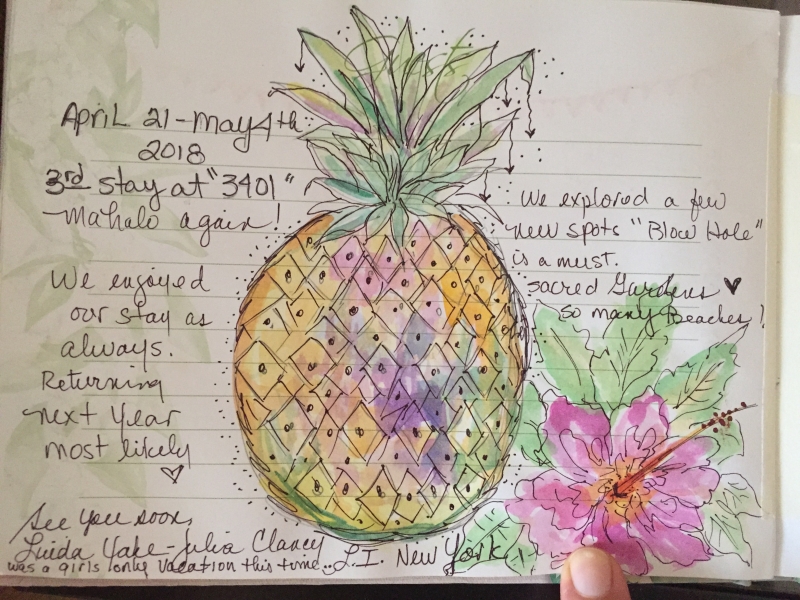 April 21 - May 4th
2018
3rd stay at "3401"
Mahalo again!
We enjoyed
our stay as
always.
Returning
next year
most likely
We explored a few
new spots "Blow Hole"
is a must.
Sacred Gardens
so many Beaches!
See you soon,
Linda Yake - Julia Clancy
L.I. New York
was a girls only vacation this time..